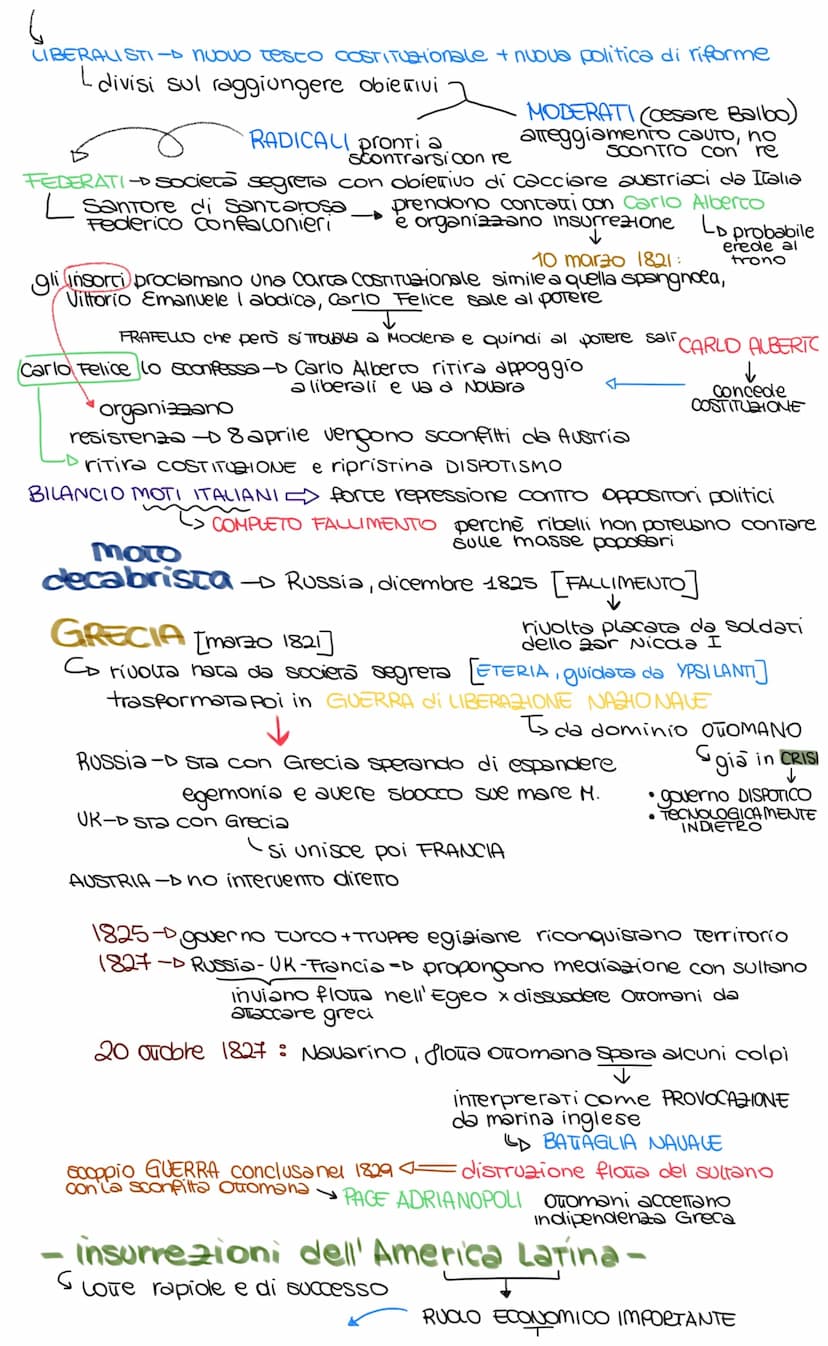 LIBERALISTI → nuovo testo costituzionale + nuova politica di riforme
divisi sul raggiungere obiettivi
MODERATI (Cesare Balbo)
atteggiamento cauto, no
scontro con re
RADICALI pronti a
scontrarsi con re
FEDERATI → società segreta con obiettivo di cacciare austriaci da Italia
Santore di Santarosa
Federico Confalonieri → prendono contatti con Carlo Alberto
e organizzano insurrezione
↳ probabile
erede al
trono
10 marzo 1821:
gli insorti proclamano una Carta Costituzionale simile a quella spangnola,
Vittorio Emanuele I abdica, Carlo Felice sale al potere
FRATELLO che però si trovava a Modena e quindi al potere salì CARLO ALBERTO
concede
COSTITUZIONE
Carlo Felice lo sconfessa → Carlo Alberto ritira appoggio
a liberali e va a Novara
organizzano
resistenza → 8 aprile vengono sconfitti da Austria
ritira COSTITUZIONE e ripristina DISPOTISMO
BILANCIO MOTI ITALIANI ⇒ forte repressione contro oppositori politici
↳ COMPLETO FALLIMENTO perchè ribelli non potevano contare
sulle masse popolari
moto
decabrista → Russia, dicembre 1825 [FALLIMENTO]
rivolta placata da soldati
dello zar Nicola I
GRECIA [marzo 1821]
↳ rivolta nata da società segreta [ETERIA, guidata da YPSILANTI]
trasformata poi in GUERRA di LIBERAZIONE NAZIONALE
↳ da dominio OTTOMANO
↳ già in CRISI
• governo DISPOTICO
• TECNOLOGICAMENTE
INDIETRO
Russia → sta con Grecia sperando di espandere
egemonia e avere sbocco sue mare M.
UK → sta con Grecia
si unisce poi FRANCIA
AUSTRIA → no intervento diretto
1825 → governo turco + truppe egiziane riconquistano territorio
1827 → Russia - UK - Francia ⇒ propongono mediazione con sultano
inviano flotta nell'Egeo x dissuadere Ottomani da
attaccare greci
20 ottobre 1827: Navarino, flotta ottomana spara alcuni colpi
interpretati come PROVOCAZIONE
da marina inglese
↳ BATTAGLIA NAVALE
scoppio GUERRA conclusa nel 1829 ⇐ distruzione flotta del sultano
con la sconfitta ottomana → PACE ADRIANOPOLI Ottomani accettano
indipendenza Greca
- insurrezioni dell'America Latina -
↳ lotte rapide e di successo
RUOLO ECONOMICO IMPORTANTE